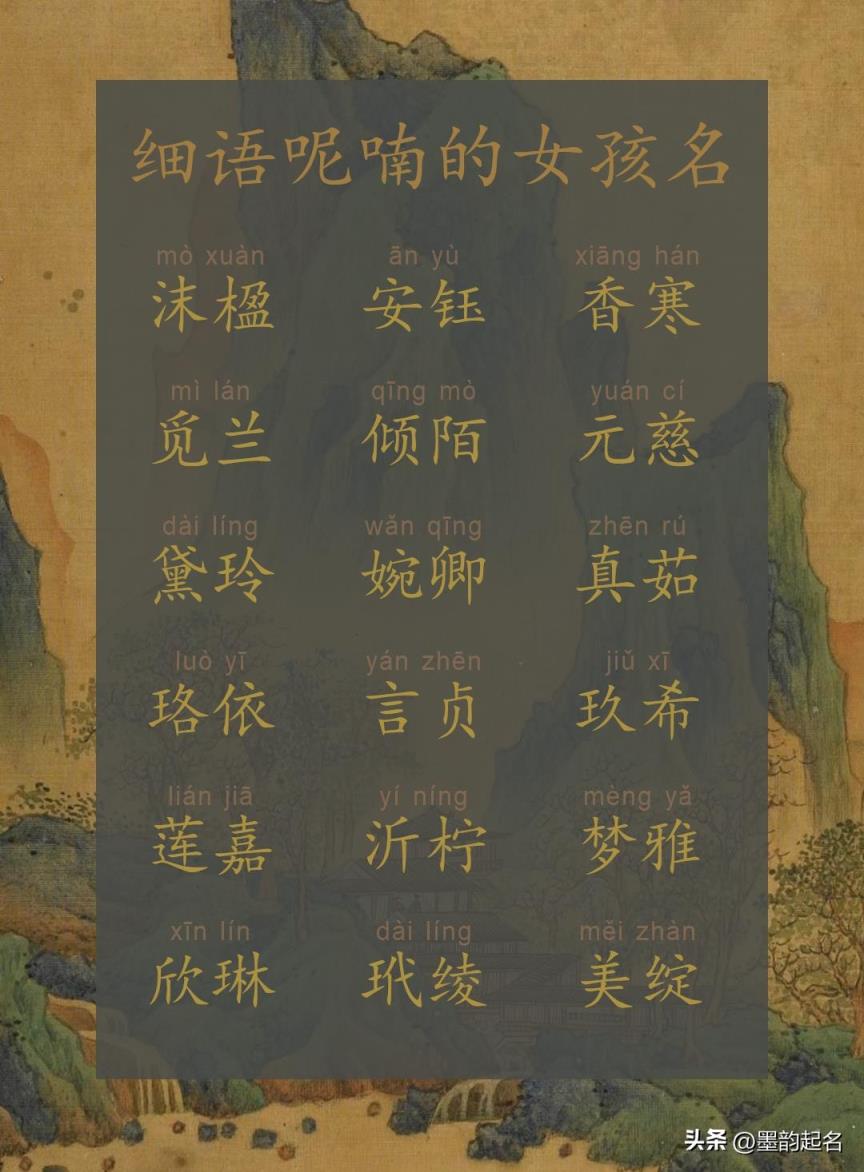 细语呢喃的女孩名
mò xuàn ān yù xiāng hán
沫楹 安钰 香寒
mì lán qīng mò yuán cí
觅兰 倾陌 元慈
dài líng wǎn qīng zhēn rú
黛玲 婉卿 真茹
luò yī yán zhēn jiǔ xī
珞依 言贞 玖希
lián jiā yí níng mèng yǎ
莲嘉 沂柠 梦雅
xīn lín dài líng měi zhàn
欣琳 玳绫 美绽
头条 @墨韵起名